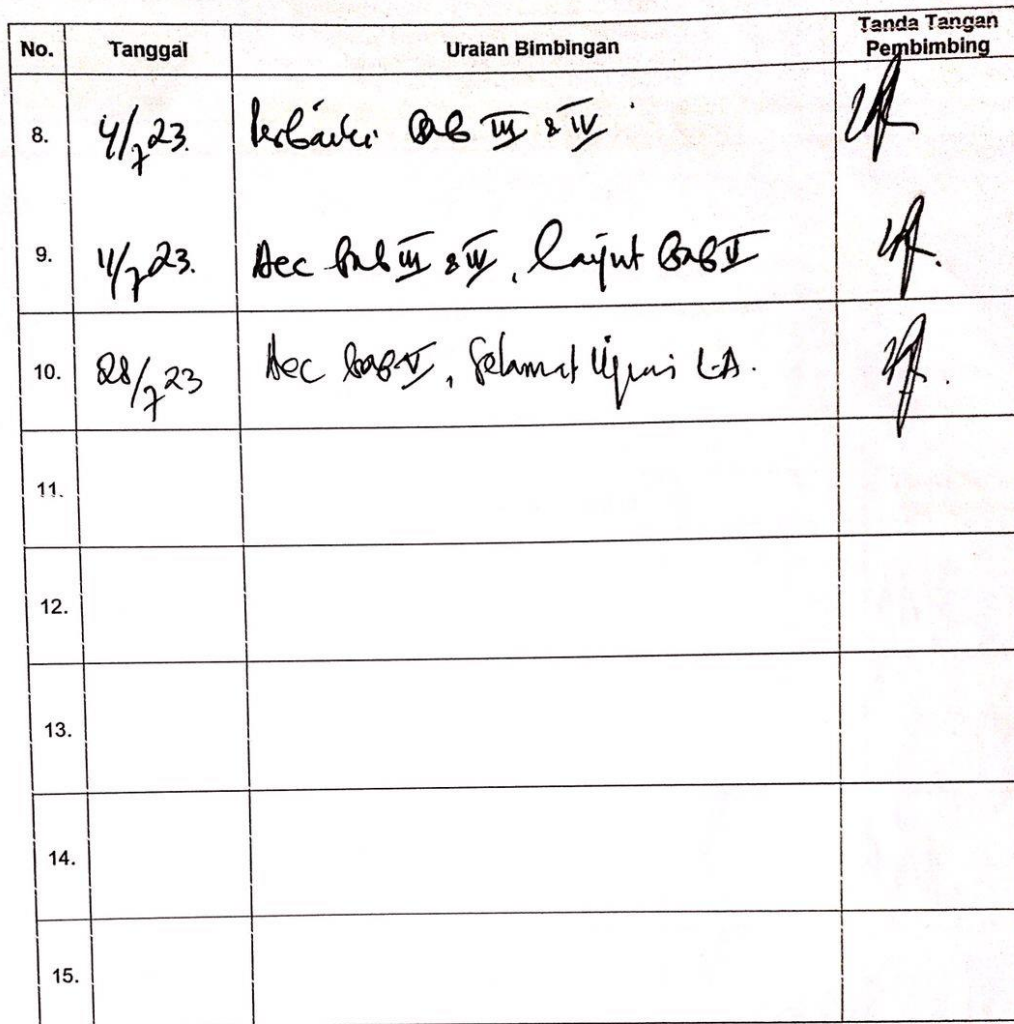 No. Tanggal Uraian Bimbingan Tanda Tangan Pembimbing
8. 4/7 23. Perbaiki Bab III & IV
9. 11/7 23. Acc Bab III & IV, lanjut Bab V
10. 28/7 23 Acc Bab V, Selamat Ujian LA.
11.
12.
13.
14.
15.